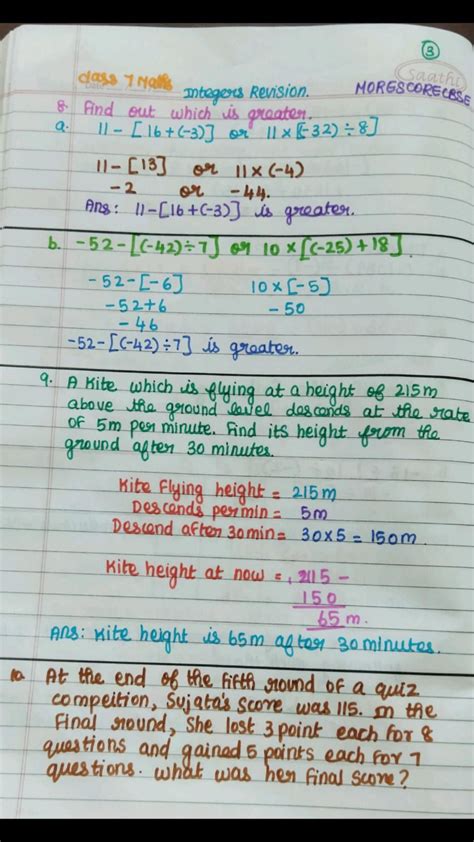 3
saathi
class 7 Maths
Date
Integers Revision.
MORESCORECBSE
8. Find out which is greater.
a. 11 - [16+(-3)] or 11 × [(-32) ÷ 8]
11 - [13] or 11 × (-4)
-2 or -44.
Ans: 11-[16+(-3)] is greater.
b. -52-[(-42)÷7] or 10 × [(-25) + 18]
-52-[-6] 10 × [-5]
-52+6 -50
-46
-52-[(-42)÷7] is greater.
9. A Kite which is flying at a height of 215m
above the ground level descends at the rate
of 5m per minute. Find its height from the
ground after 30 minutes.
Kite Flying height = 215m
Descends per min = 5m
Descend after 30min = 30×5 = 150m
Kite height at now = 215 -
150
65m.
Ans: Kite height is 65m after 30 minutes.
10 At the end of the fifth round of a quiz
compeition, Sujata's score was 115. In the
Final round, She lost 3 point each for 8
questions and gained 5 points each for 7
questions. What was her final score?